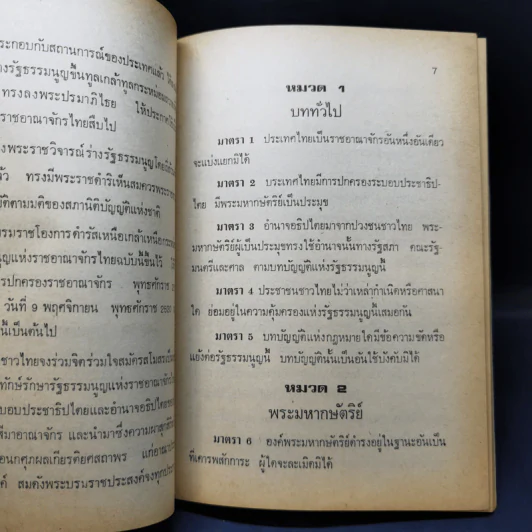 ระกอบกับสถานการณ์ของประเทศแล้ว
างรัฐธรรมนูญขึ้นทูลเกล้าทูลกระหม่อม
ทรงลงพระปรมาภิไธย ให้ประกาศ
ราชอาณาจักรไทยสืบไป
งพระราชวิจารณ์ร่างรัฐธรรมนูญโดย
ล้ว ทรงมีพระราชดำริเห็นสมควรพระราช
ญัติตามมติของสภานิติบัญญัติแห่งชาติ
รมราชโองการดำรัสเหนือเกล้าเหนือกระหม่อม
นูญแห่งราชอาณาจักรไทยฉบับนี้ขึ้นไว้
การปกครองราชอาณาจักร พุทธศักราช
วันที่ 9 พฤศจิกายน พุทธศักราช
นี้เป็นต้นไป
ชาวไทยจงร่วมจิตร่วมใจสมัครสโมสร
ทักษ์รักษารัฐธรรมนูญแห่งราชอาณาจักร
ะบอบประชาธิปไตยและอำนาจอธิปไตย
สีมาอาณาจักร และนำมาซึ่งความผาสุก
อนกศุภผลเกียรติยศสถาพร แก่อาณา
ค์ สมดังพระบรมราชประสงค์จงทุกประ
7
หมวด 1
บททั่วไป
มาตรา 1 ประเทศไทยเป็นราชอาณาจักรอันหนึ่งอันเดียว
จะแบ่งแยกมิได้
มาตรา 2 ประเทศไทยมีการปกครองระบอบประชาธิป-
ไตย มีพระมหากษัตริย์เป็นประมุข
มาตรา 3 อำนาจอธิปไตยมาจากปวงชนชาวไทย พระ-
มหากษัตริย์ผู้เป็นประมุขทรงใช้อำนาจนั้นทางรัฐสภา คณะรัฐ-
มนตรีและศาล ตามบทบัญญัติแห่งรัฐธรรมนูญนี้
มาตรา 4 ประชาชนชาวไทยไม่ว่าเหล่ากำเนิดหรือศาสนา
ใด ย่อมอยู่ในความคุ้มครองแห่งรัฐธรรมนูญนี้เสมอกัน
มาตรา 5 บทบัญญัติแห่งกฎหมายใดมีข้อความขัดหรือ
แย้งต่อรัฐธรรมนูญนี้ บทบัญญัตินั้นเป็นอันใช้บังคับมิได้
หมวด 2
พระมหากษัตริย์
มาตรา 6 องค์พระมหากษัตริย์ดำรงอยู่ในฐานะอันเป็น
ที่เคารพสักการะ ผู้ใดจะละเมิดมิได้